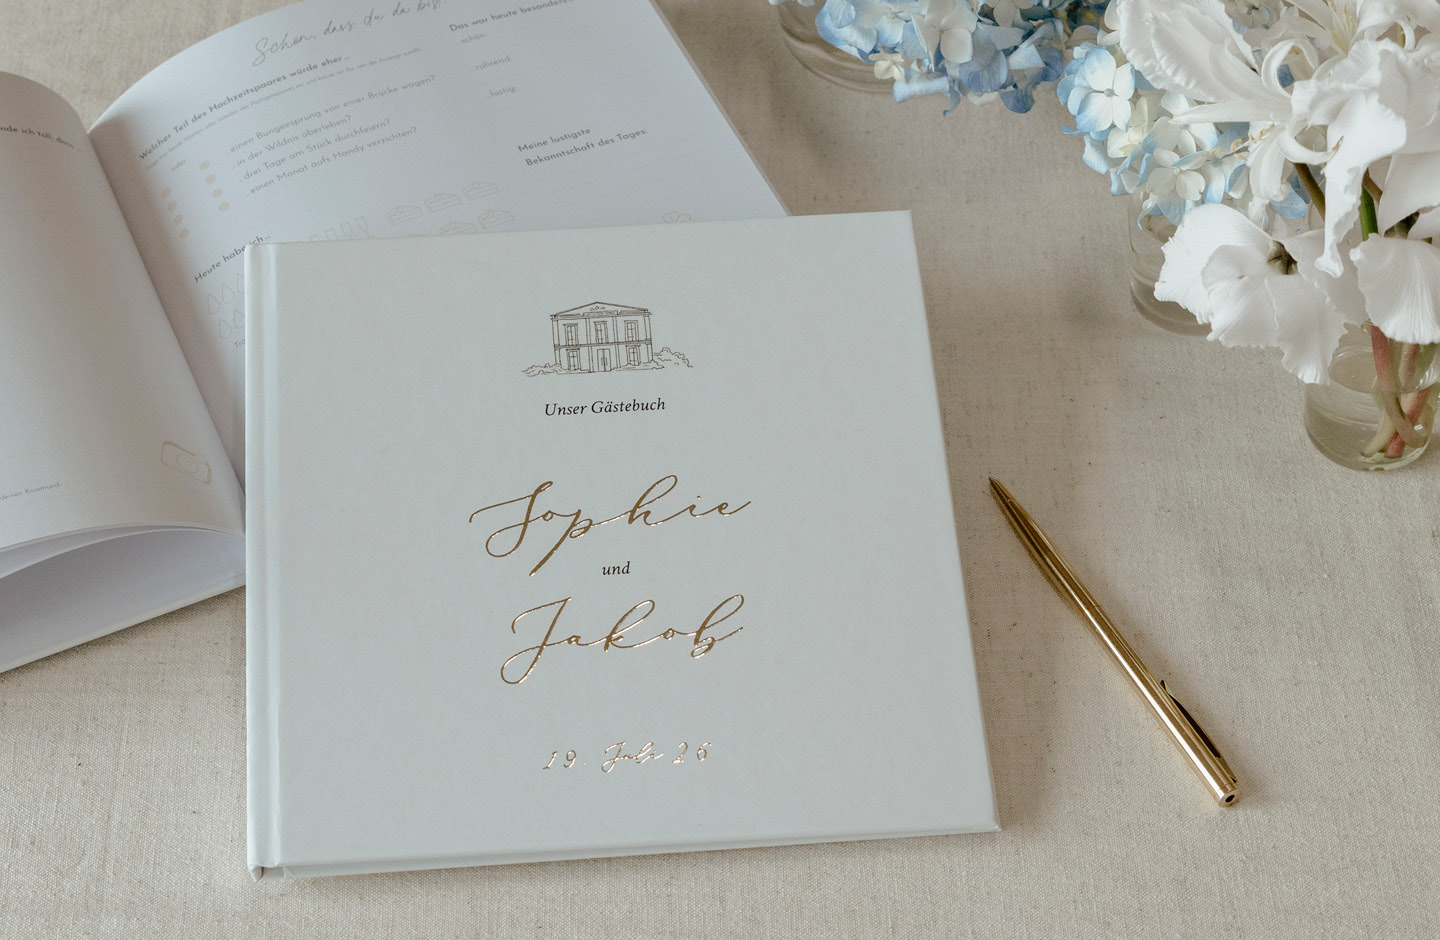 Schön, dass du da bist
Welcher Teil des Hochzeitspaares würde eher...
...oder
...einen Bungeesprung von einer Brücke wagen?
...in der Wildnis überleben?
...drei Tage am Stück durchfeiern?
...einen Monat aufs Handy verzichten?
Heute habe ich...
Das war heute besonders...
...schön
...rührend:
...lustig:
Meine lustigste
Bekanntschaft des Tages:
finde ich toll, dass
Unser Gästebuch
Sophie
und
Jakob
19. Juli 26